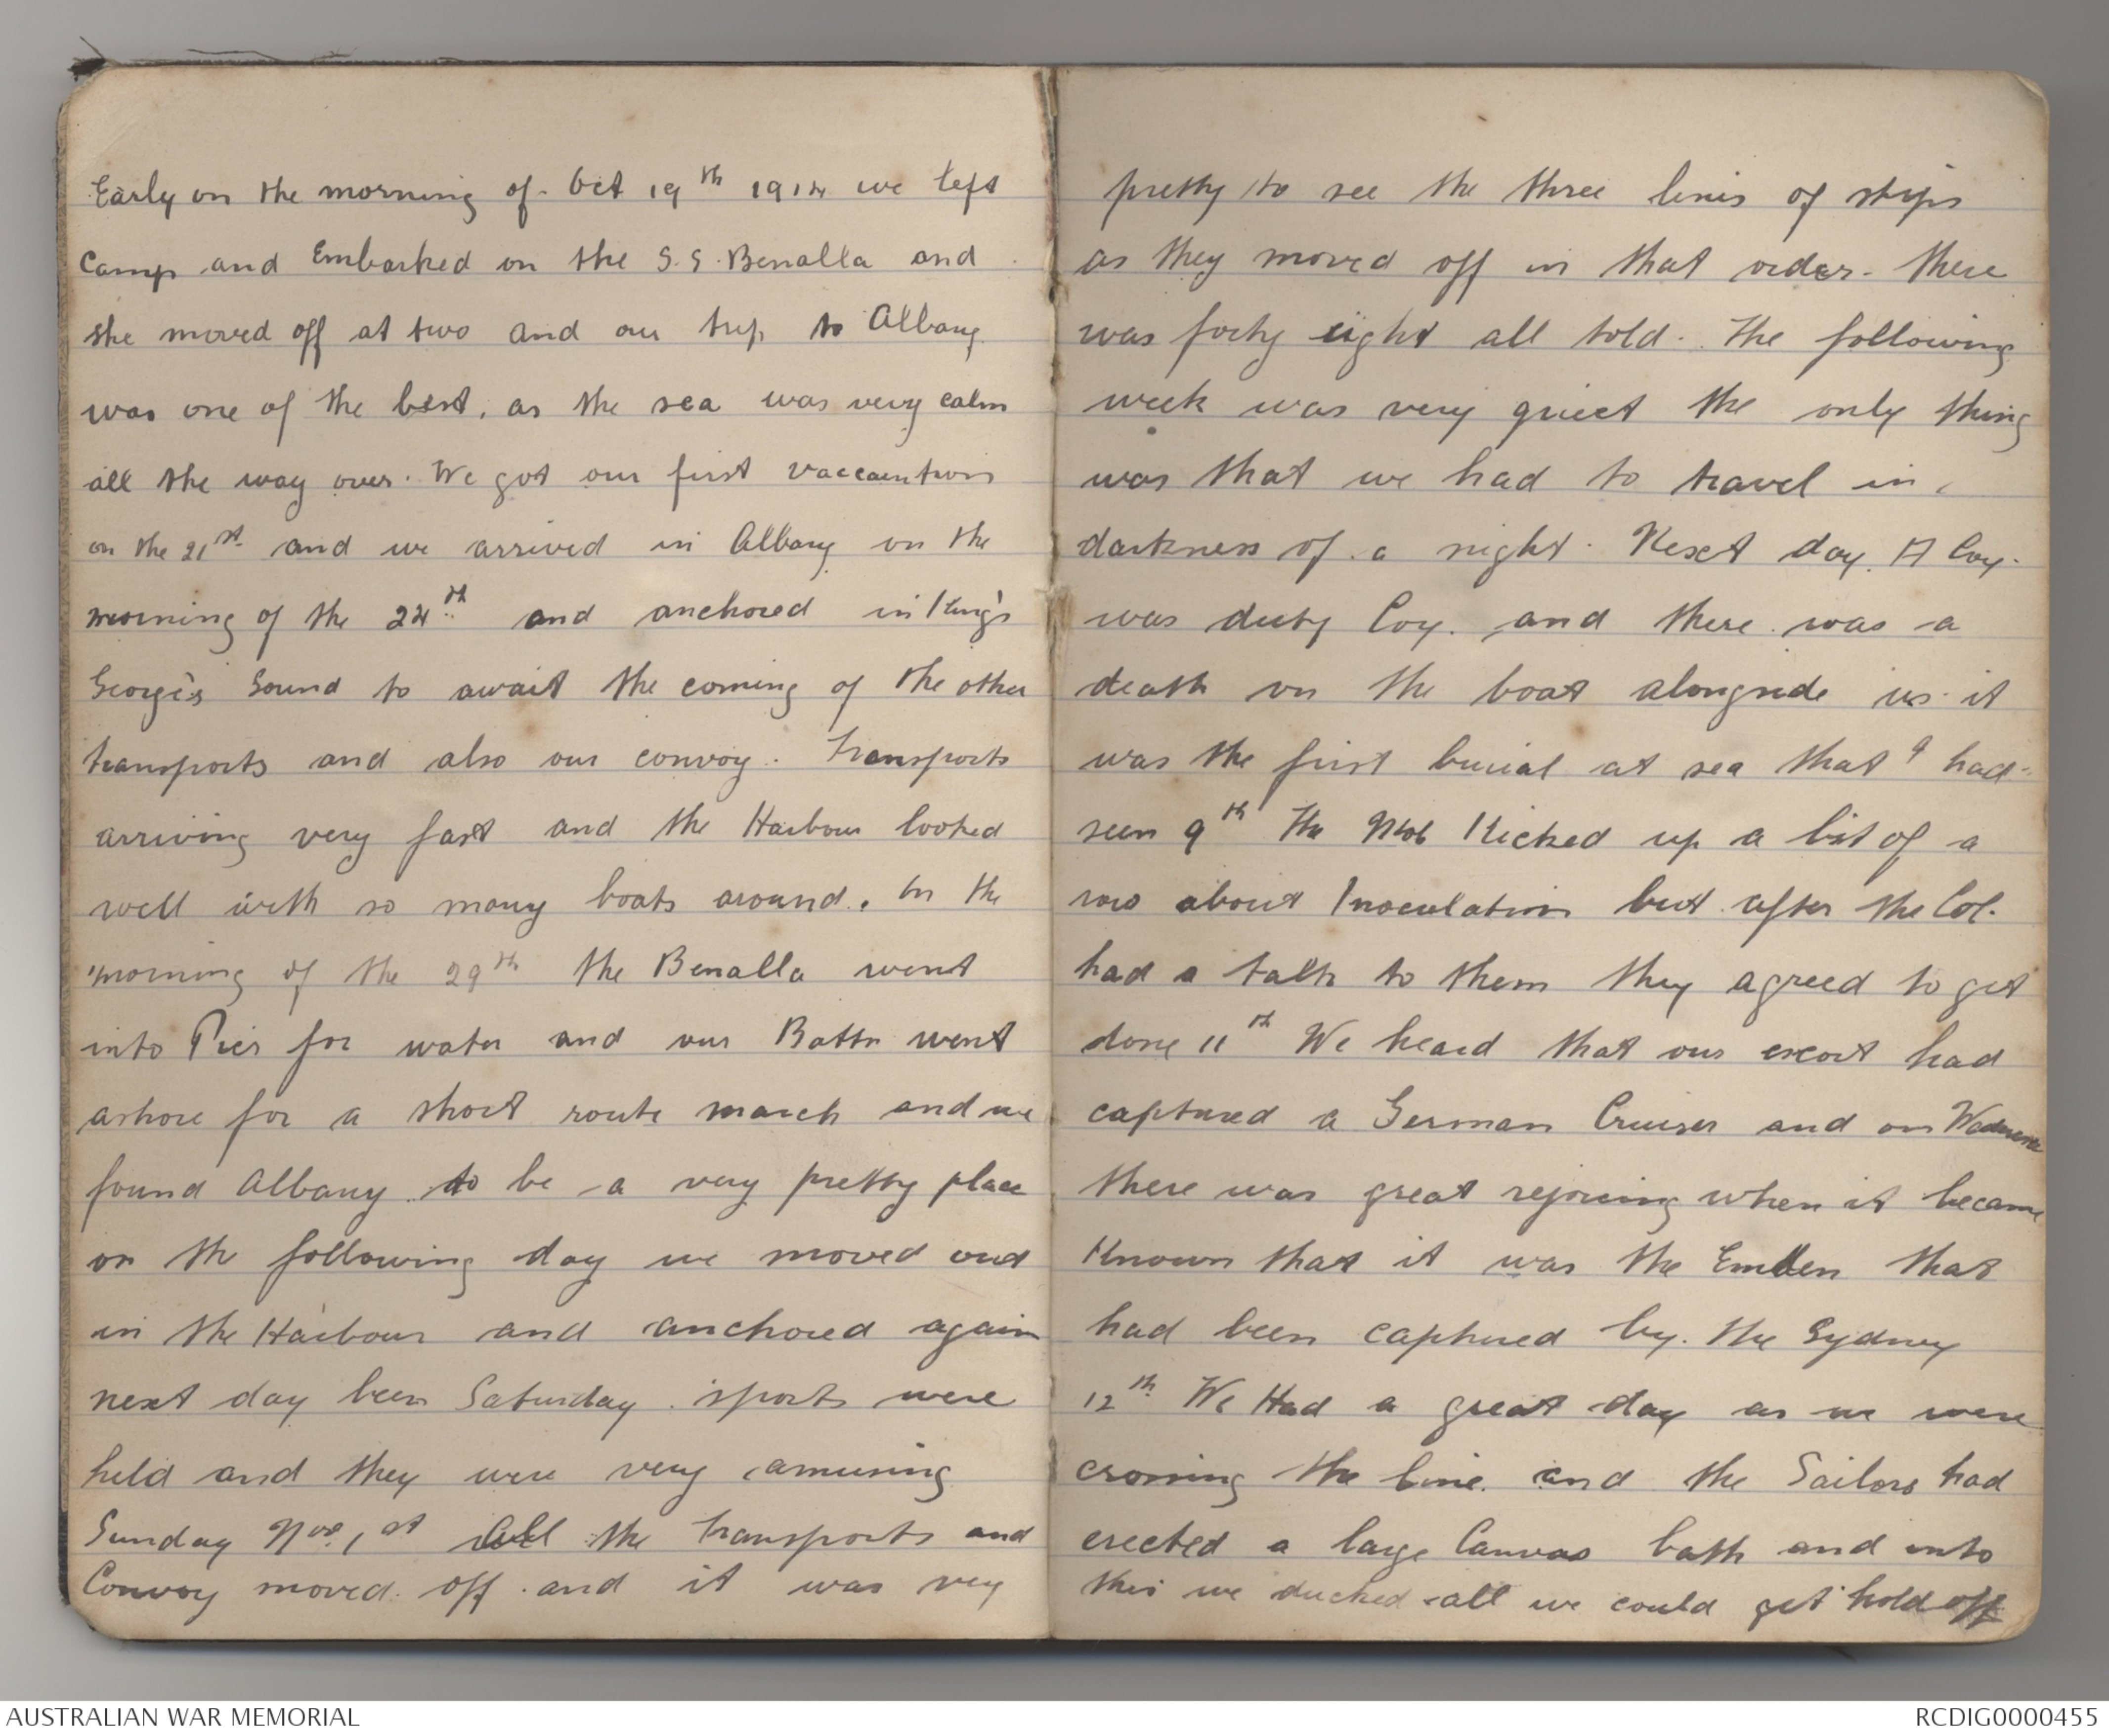 Early on the morning of Oct 19th 1914 we left
Camp and Embarked on the S.S. Benalla and
she moved off at two and our trip to Albany
was one of the best, as the sea was very calm
all the way over. We got our first vaccaintion
on the 21st and we arrived in Albany on the
morning of the 24th and anchored in King's
George's Sound to await the coming of the other
transports and also our convoy. Transports
arriving very fast and the Harbour looked
well with so many boats around. On the
morning of the 29th the Benalla went
into Pier for water and our Battn went
ashore for a short route march and we
found Albany to be a very pretty place
on the following day we moved out
in the Harbour and anchored again
next day been Saturday sports were
held and they were very amusing
Sunday Nov. 1st All the Transports and
Convoy moved off and it was very
pretty to see the three lines of ships
as they moved off in that order. There
was forty eight all told. The following
week was very quiet the only thing
was that we had to travel in
darkness of a night. Next day A Coy.
was duty Coy. and there was a
death on the boat alongside us it
was the first burial at sea that I had
seen 9th The Mob Kicked up a bit of a
row about Inoculation but after the Col.
had a talk to them they agreed to get
done 11th We heard that our escort had
captured a German Cruiser and on
there was great rejoicing when it became
Known that it was the Emden that
had been captured by the Sydney
12th We Had a great day as we were
crossing the line and the Sailors had
erected a large Canvas bath and into
this we ducked all we could get hold off
AUSTRALIAN WAR MEMORIAL
RCDIG0000455